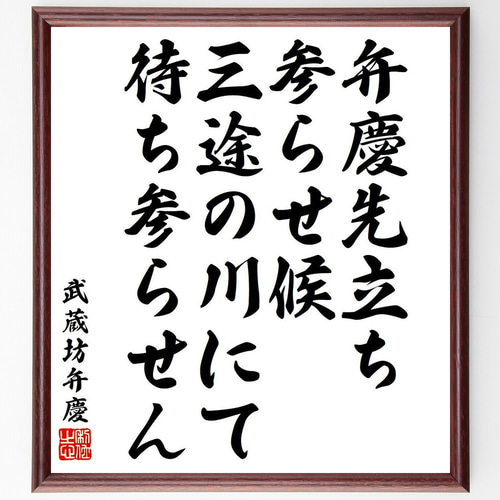 弁慶先立ち
参らせ候
三途の川にて
待ち参らせん
武蔵坊弁慶